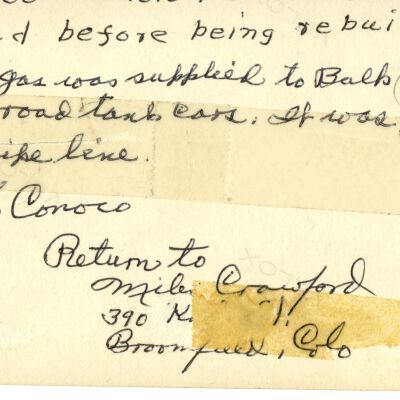 d before being rebui
gas was supplied to Bulk
road tank cars. It was
ipe line.
Conoco
Return to
Miles Crawford
390 K
Broomfield, Colo